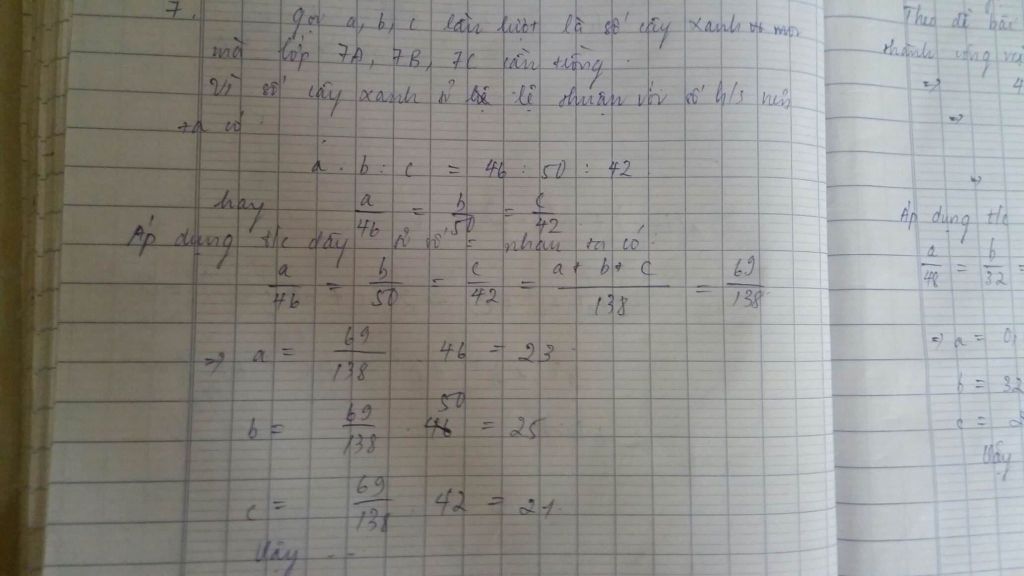 7.
Gọi a, b, c lần lượt là số cây xanh
mà lớp 7A, 7B, 7C cần trồng.
Vì số cây xanh tỉ lệ thuận với số h/s nên
ta có:
a : b : c = 46 : 50 : 42
hay a/46 = b/50 = c/42
Áp dụng t/c dãy tỉ số = nhau ta có:
a/46 = b/50 = c/42 = a + b + c/138 = 69/138
=> a = 69/138 . 46 = 23.
b = 69/138 . 50 = 25
c = 69/138 . 42 = 21.
Vậy ...
Theo đề bài
thành công
=> 4
=>
=>
Áp dụng t/c
a/48 = b/32 =
=> a = 0,
b = 32
c = 2
Vậy